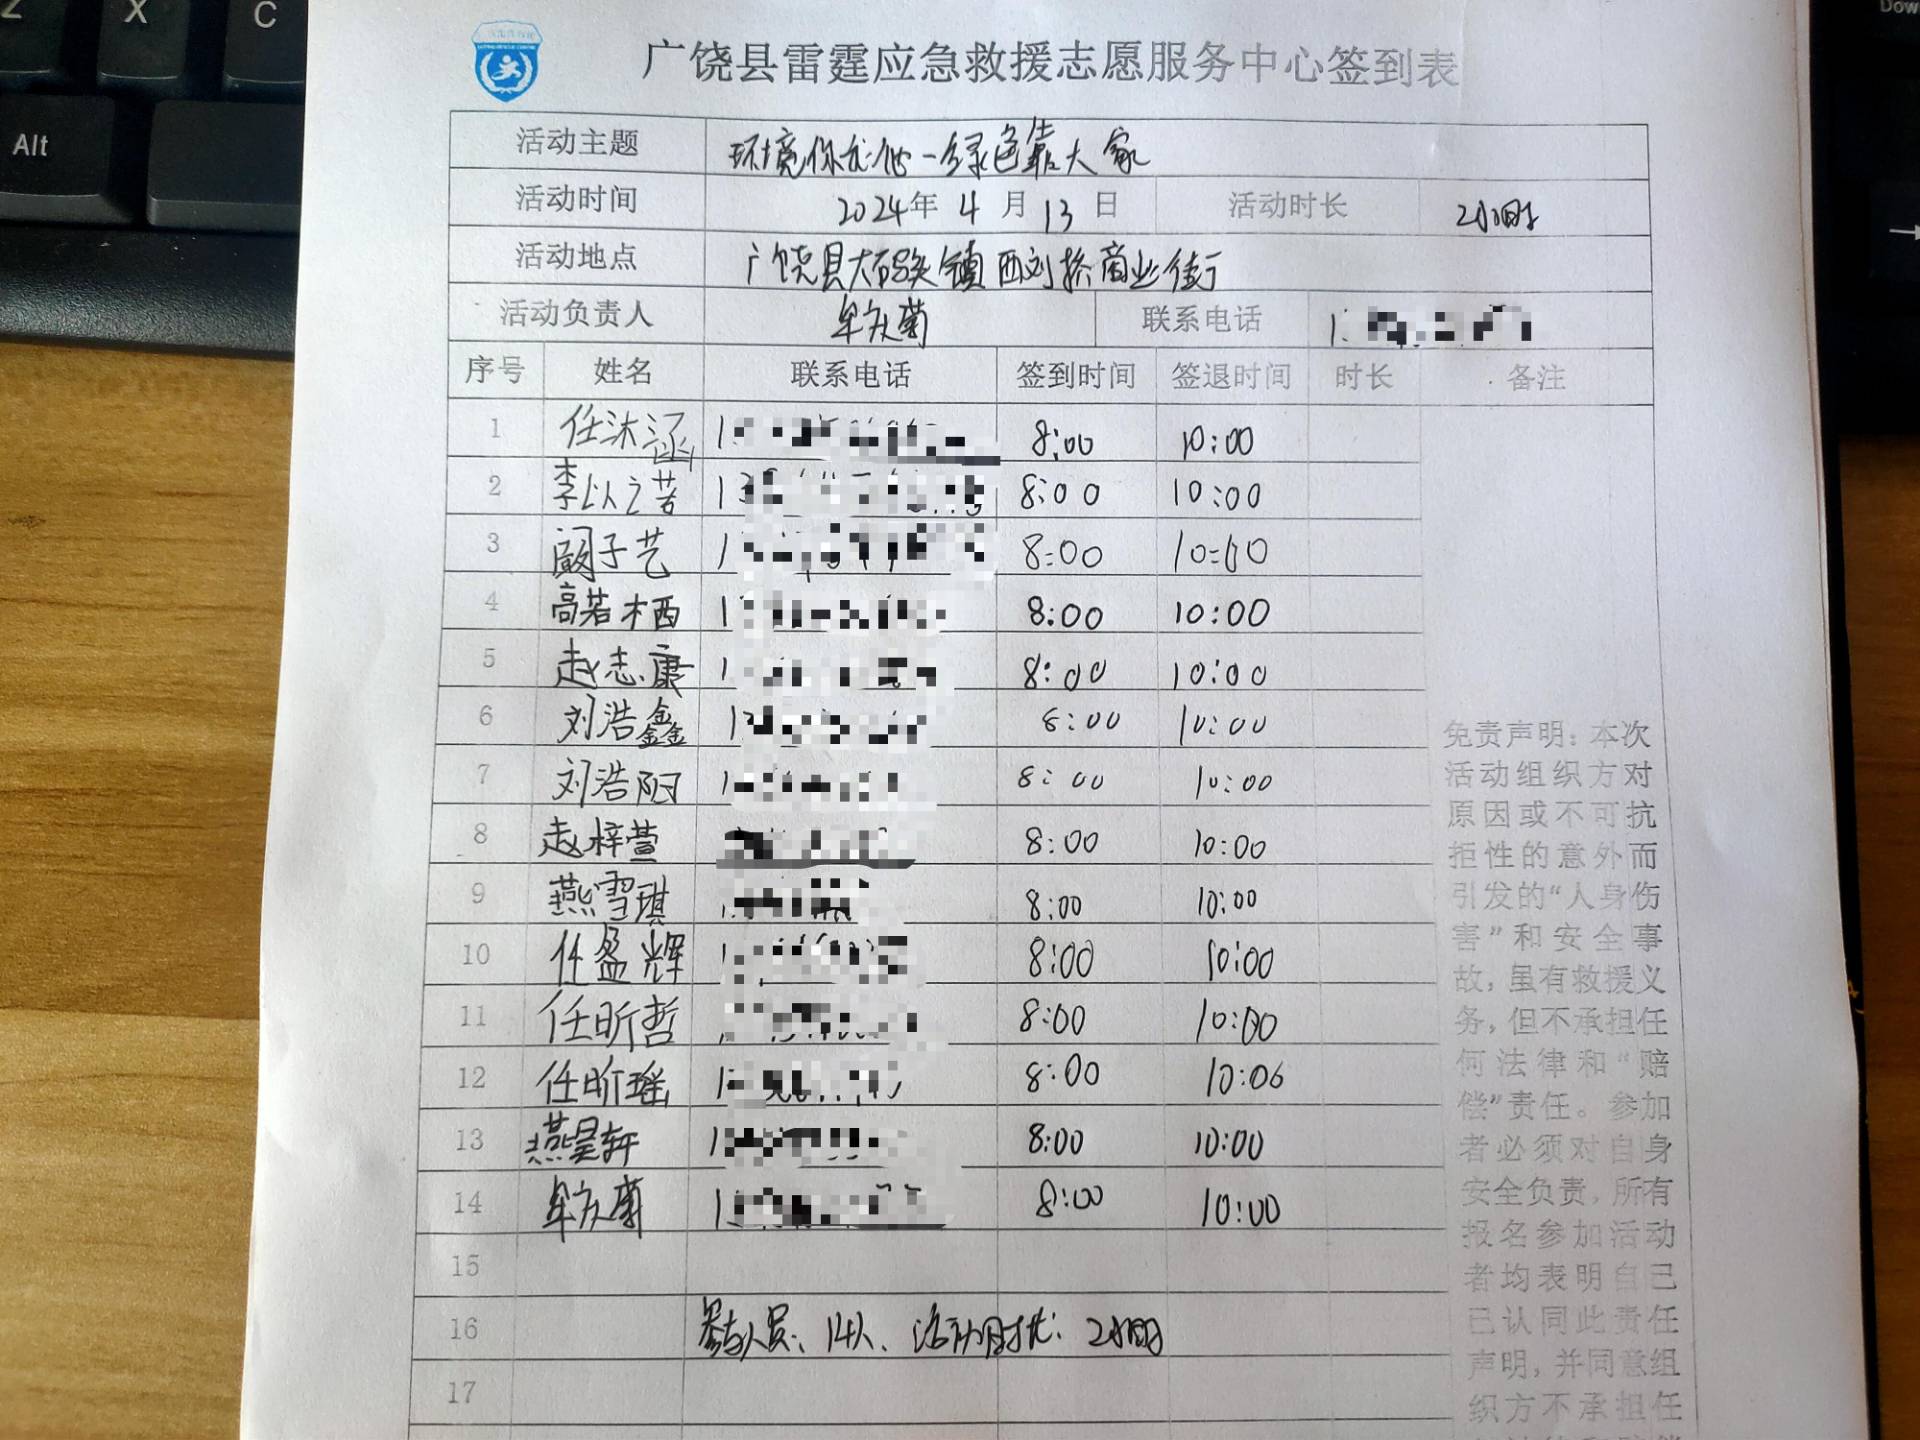 Z X C
Alt
Dow
→
广饶县雷霆应急救援志愿服务中心签到表
活动主题 环境你我他一绿色靠大家
活动时间 2024年 4 月 13 日 活动时长 2小时
活动地点 广饶县大码头镇西刘桥商业街
活动负责人 牟庆菊 联系电话 1
序号 姓名 联系电话 签到时间 签退时间 时长 备注
1 任沐涵 1 8:00 10:00
2 李以之若 13 8:00 10:00
3 阚子艺 1 8:00 10:00
4 高若栖 1 8:00 10:00
5 赵志康 1 8:00 10:00
6 刘浩鑫 1 8:00 10:00
7 刘浩阳 1 8:00 10:00
8 赵梓萱 8:00 10:00
9 燕雪琪 8:00 10:00
10 任盈辉 1 8:00 10:00
11 任昕哲 1 8:00 10:00
12 任昕瑶 1 8:00 10:06
13 燕昊轩 1 8:00 10:00
14 牟庆菊 1 8:00 10:00
15
16 参与人员:14人、活动时长:2小时
17
免责声明:本次
活动组织方对
原因或不可抗
拒性的意外而
引发的“人身伤
害”和安全事
故,虽有救援义
务,但不承担任
何法律和“赔
偿”责任。参加
者必须对自身
安全负责,所有
报名参加活动
者均表明自己
已认同此责任
声明,并同意组
织方不承担任